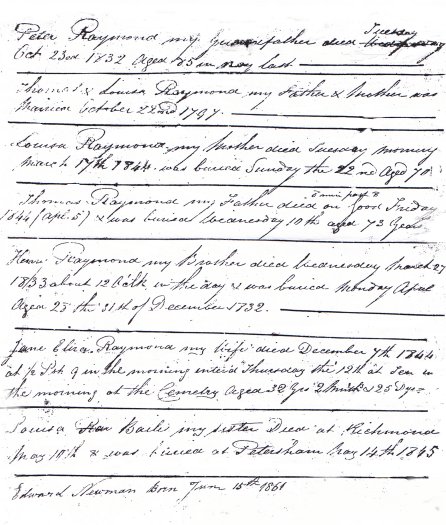 Tuesday
Peter Raymond my Grandfather died Wednesday
Oct 23rd 1832 Aged 85 in May last
Thomas & Louisa Raymond my Father & Mother was
Married October 22nd 1797.
Louisa Raymond my Mother died Tuesday morning
March 17th 1844 was buried Sunday the 22nd Aged 70
Thomas Raymond my Father died on Good Friday
1844 (Apl. 5) & was buried Wednesday 10th aged 73 Years
Raymond my Brother died Wednesday March 27
1833 about 12 O'Clk in the day & was buried Monday April
Aged 25 the 31st of December 1832.
Jane Eliza Raymond my Wife died December 7th 1844
at 1/2 Pst 9 in the morning Thursday the 12th at Ten in
the morning at the Cemetry Aged 32 Yrs 2 Mnths & 25 Dys
Louisa my sister Died at Richmond
May & was buried at Petersham May 14th 1845
Edward Newman Born June 15th 1861